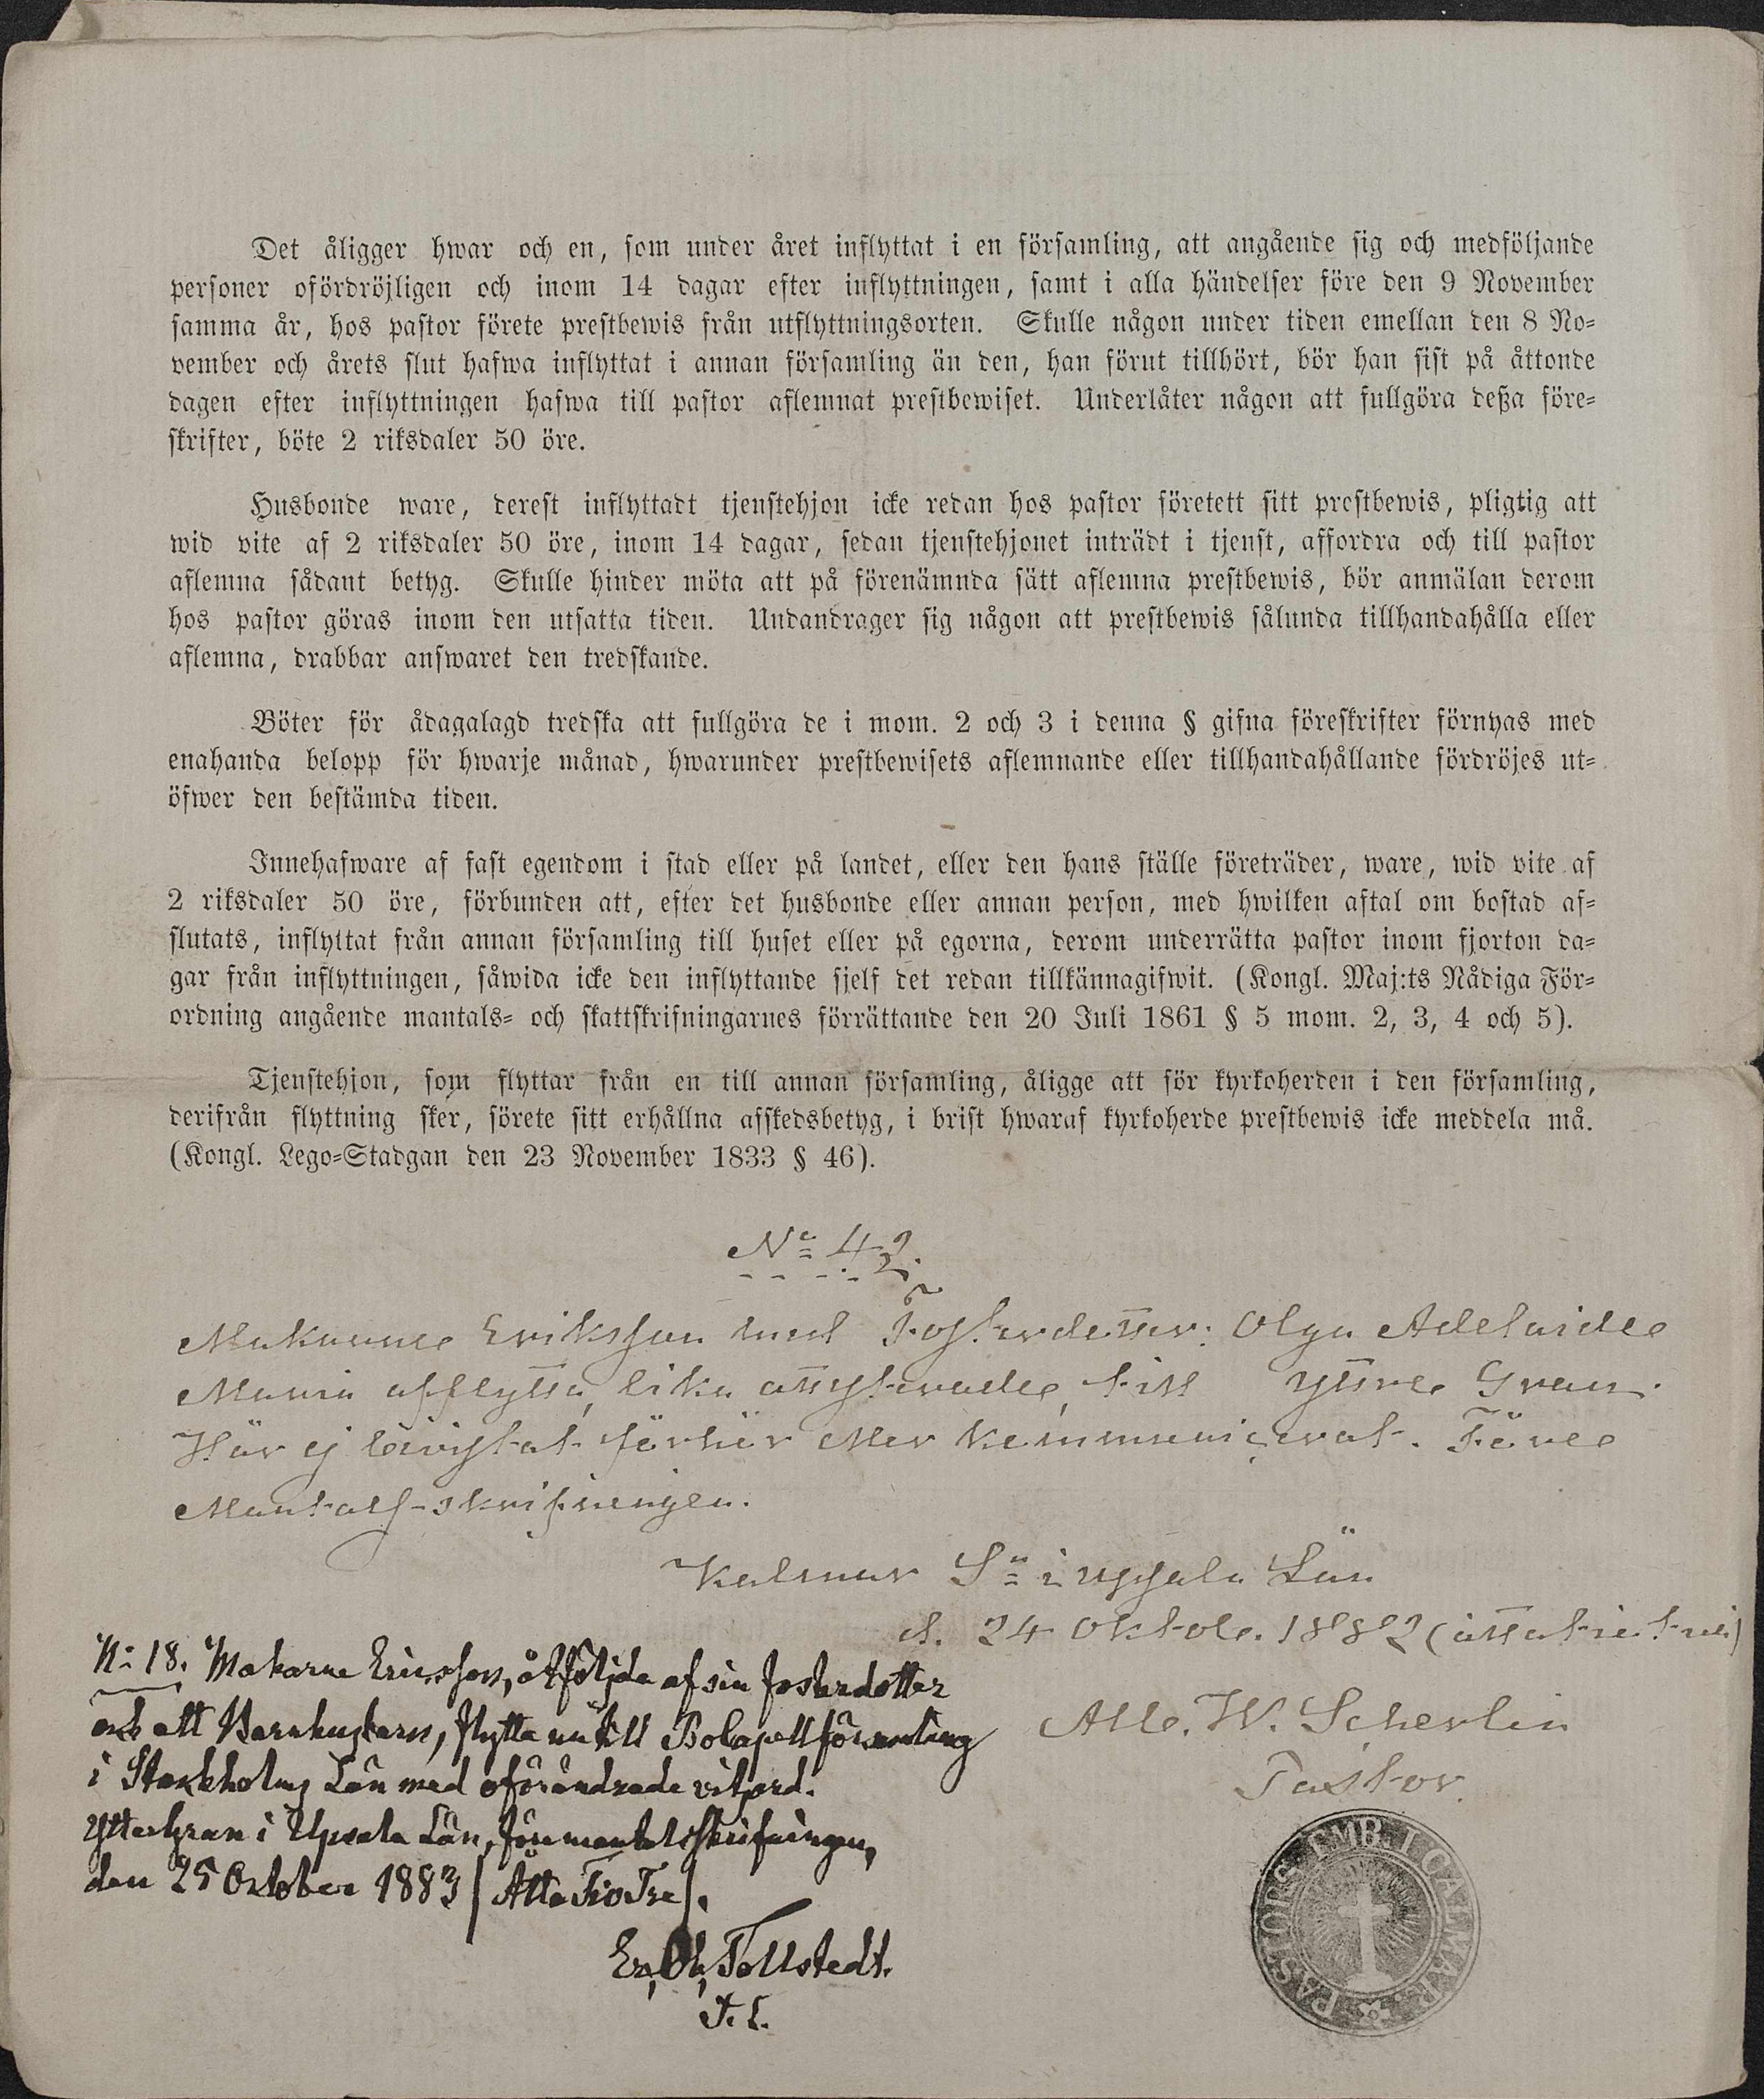 Det åligger hwar och en, som under året inflyttat i en församling, att angående sig och medföljande
personer ofördröjligen och inom 14 dagar efter inflyttningen, samt i alla händelser före den 9 November
samma år, hos pastor förete prestbewis från utflyttningsorten. Skulle någon under tiden emellan den 8 No-
vember och årets slut hafwa inflyttat i annan församling än den, han förut tillhört, bör han sist på åttonde
dagen efter inflyttningen hafwa till pastor aflemnat prestbewiset. Underlåter någon att fullgöra deßa före-
skrifter, böte 2 riksdaler 50 öre.
Husbonde ware, derest inflyttadt tjenstehjon icke redan hos pastor företett sitt prestbewis, pligtig att
wid vite af 2 riksdaler 50 öre, inom 14 dagar, sedan tjenstehjonet inträdt i tjenst, affordra och till pastor
aflemna sådant betyg. Skulle hinder möta att på förenämnda sätt aflemna prestbewis, bör anmälan derom
hos pastor göras inom den utsatta tiden. Undandrager sig någon att prestbewis sålunda tillhandahålla eller
aflemna, drabbar answaret den tredskande.
Böter för ådagalagd tredska att fullgöra de i mom. 2 och 3 i denna § gifna föreskrifter förnyas med
enahanda belopp för hwarje månad, hwarunder prestbewisets aflemnande eller tillhandahållande fördröjes ut-
öfwer den bestämda tiden.
Innehafware af fast egendom i stad eller på landet, eller den hans ställe företräder, ware, wid vite af
2 riksdaler 50 öre, förbunden att, efter det husbonde eller annan person, med hwilken aftal om bostad af-
slutats, inflyttat från annan församling till huset eller på egorna, derom underrätta pastor inom fjorton da-
gar från inflyttningen, såwida icke den inflyttande sjelf det redan tillkännagifwit. (Kongl. Maj:ts Nådiga För-
ordning angående mantals- och skattskrifningarnes förrättande den 20 Juli 1861 § 5 mom. 2, 3, 4 och 5).
Tjenstehjon, som flyttar från en till annan församling, åligge att för kyrkoherden i den församling,
derifrån flyttning sker, förete sitt erhållna afskedsbetyg, i brist hwaraf kyrkoherde prestbewis icke meddela må.
(Kongl. Lego-Stadgan den 23 November 1833 § 46).
No 42.
Makarne Eriksson med Fosterdotter: Olga Adelaide
Maria afflytta, lika attesterade, till Yttre Gran.
Har ej bevistat förhör eller kommunicerat. Före
Mantals-skrifningen.
Kalmar Sn i Upsala Län
d. 24 Oktob. 1882 (åttatietvå)
Alb. W. Scherlin
Pastor.
N: 18. Makarne Ericsson, åtföljda af sin fosterdotter
och ett Barnhusbarn, flytta nu till församling
i Stockholms Län med oförändrade vitsord.
Ytterhgran i Upsala Län, före mantalsskrifningen,
den 25 October 1883 (Åtta Tio Tre).
Er. Ol. Tollstedt.
PASTORS EMB. I CALMAR.